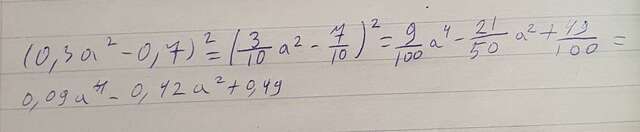 (0,3a² - 0,7)² = (3/10 a² - 7/10)² = 9/100 a⁴ - 21/50 a² + 49/100 =
0,09a⁴ - 0,42a² + 0,49